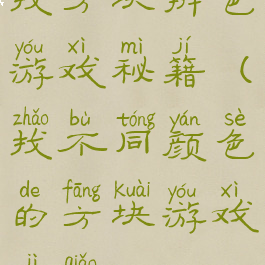 找方块辨色
yóu xì mì jí
游戏秘籍(
zhǎo bù tóng yán sè
找不同颜色
de fāng kuài yóu xì
的方块游戏
jì qiǎo